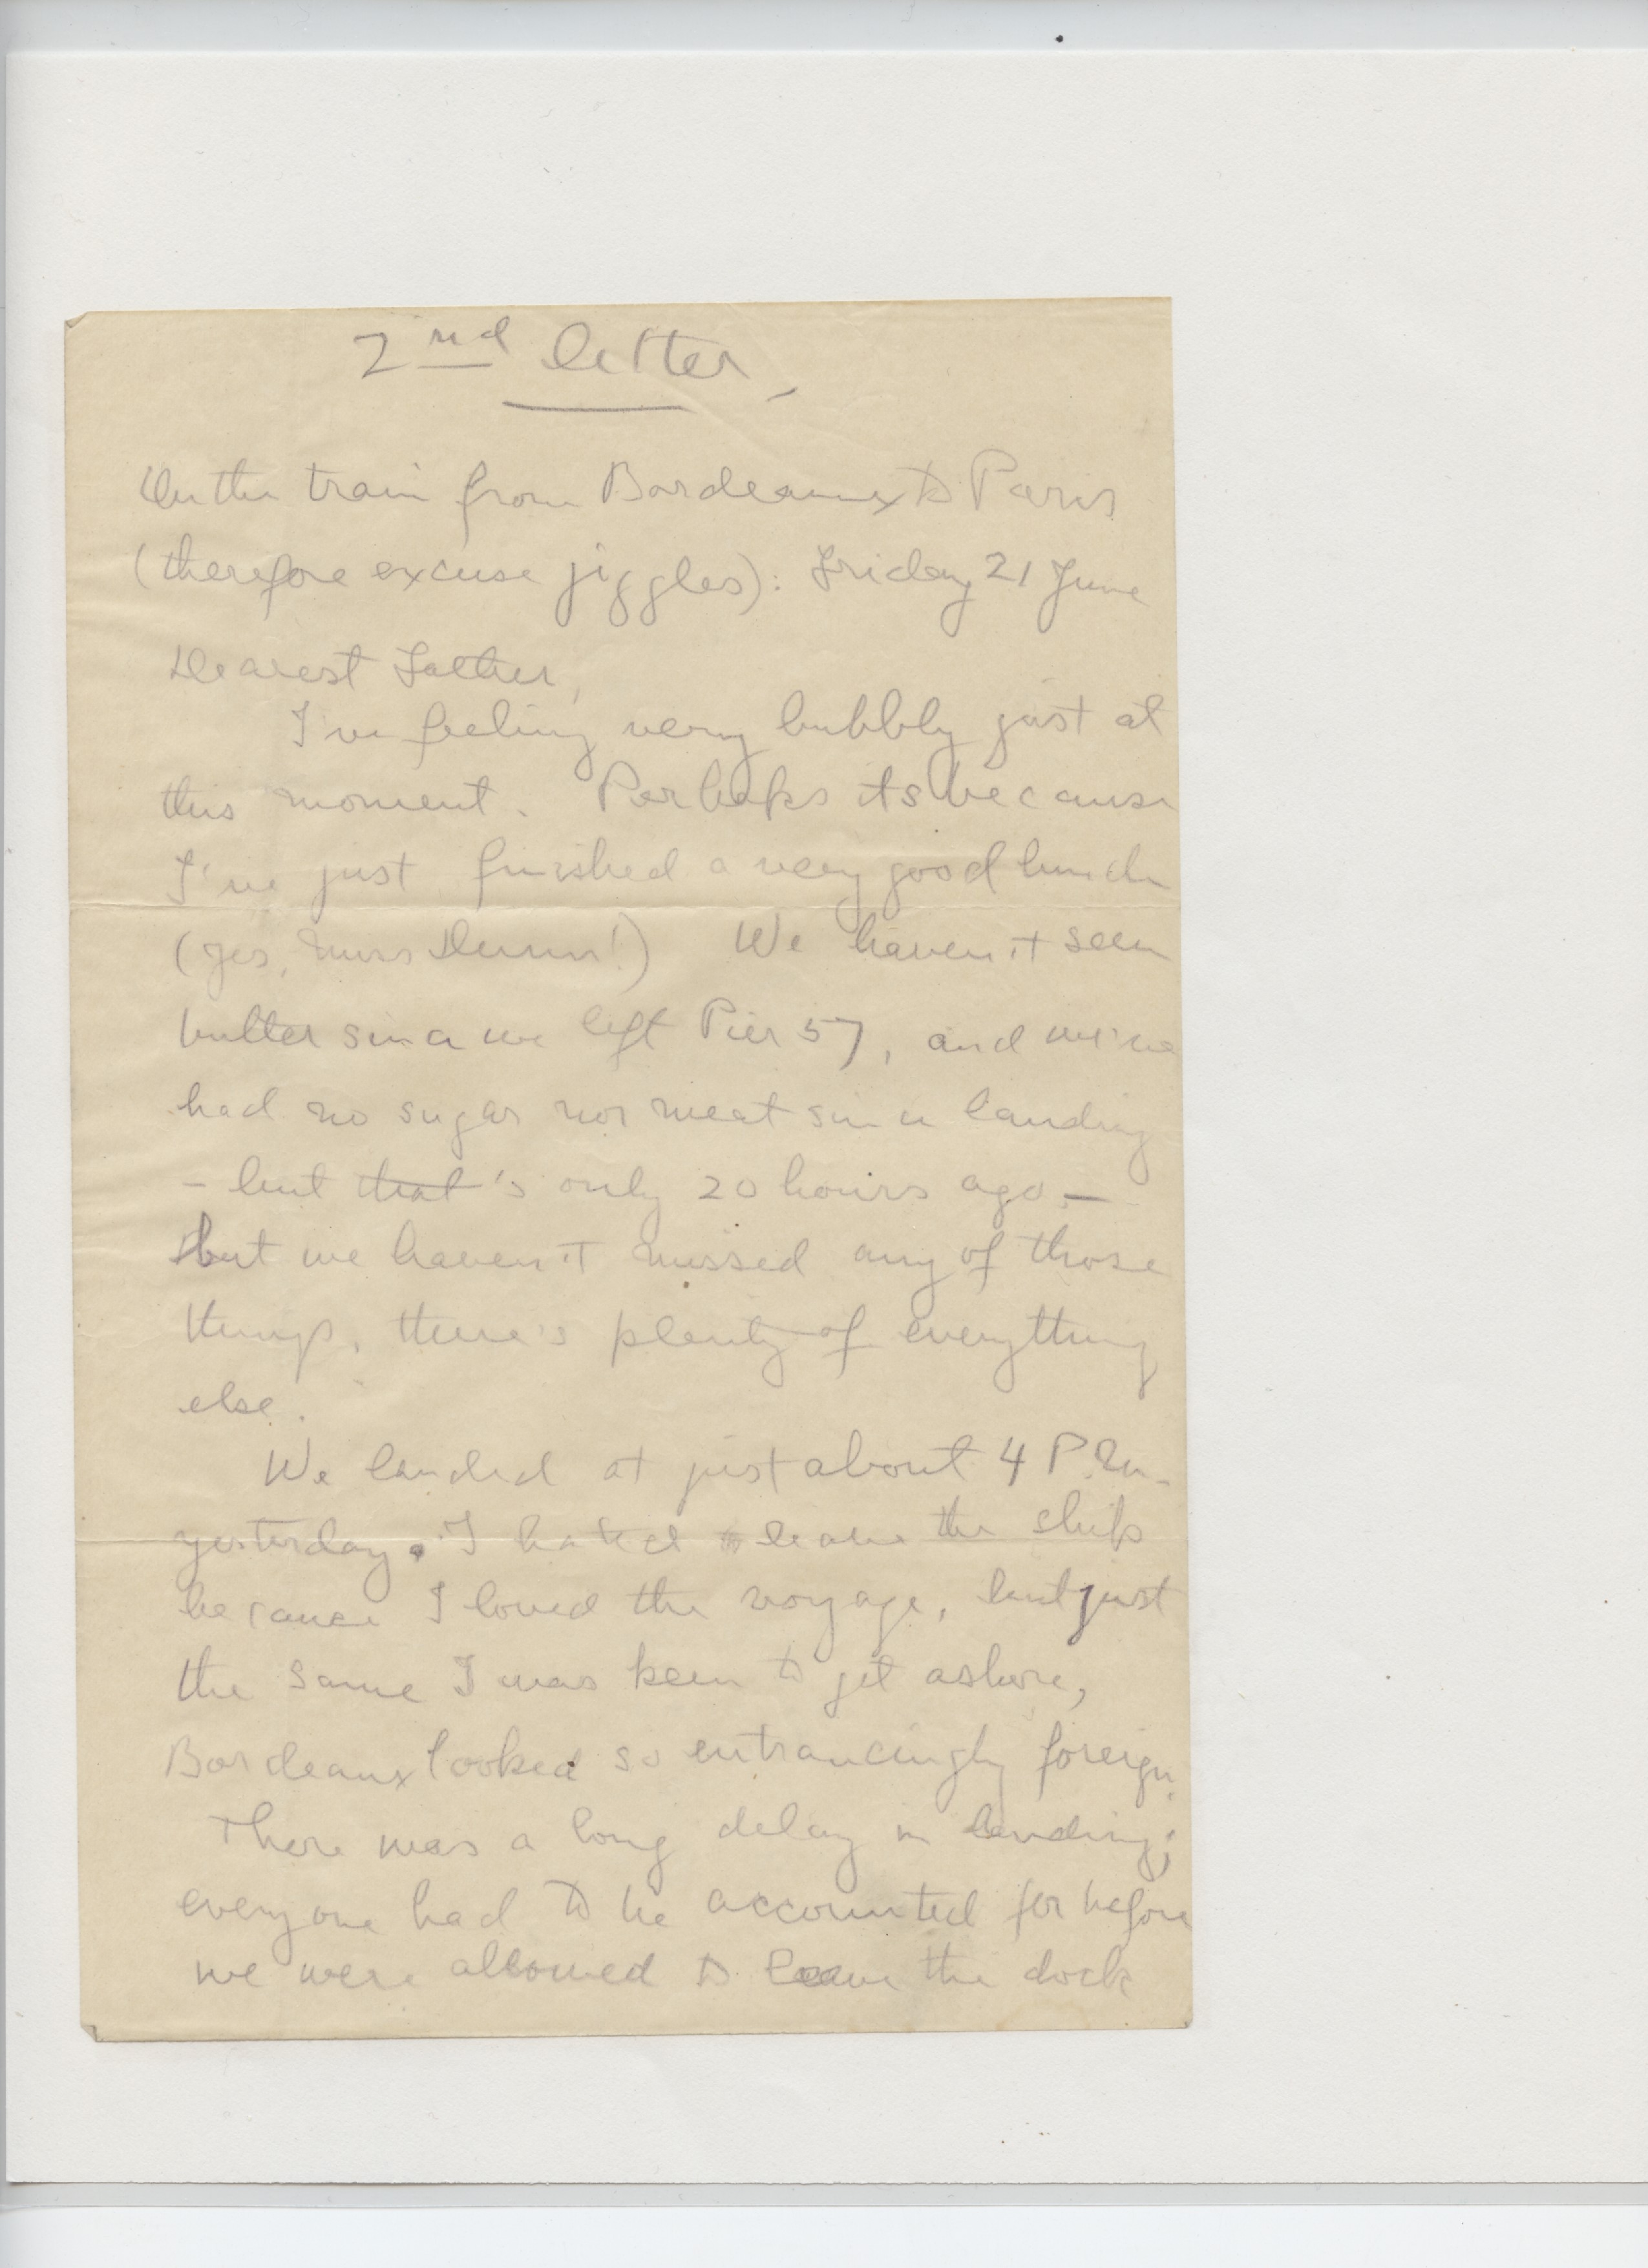 2nd letter
On the train from Bordeaux to Paris
(therefore excuse jiggles): Friday 21 June
Dearest Father,
I'm feeling very bubbly just at
this moment. Perhaps its because
I've just finished a very good lunch
(yes, Miss !) We haven't seen
butter since we left Pier 57, and we've
had no sugar nor meat since landing
- but that's only 20 hours ago —
but we haven't missed any of those
things, there's plenty of everything
else.
We landed at just about 4 P.M.
yesterday. I hated to leave the ship
because I loved the voyage, but just
the same I was keen to get ashore,
Bordeaux looked so entrancingly foreign.
There was a long delay in landing;
everyone had to be accounted for before
we were allowed to leave the dock